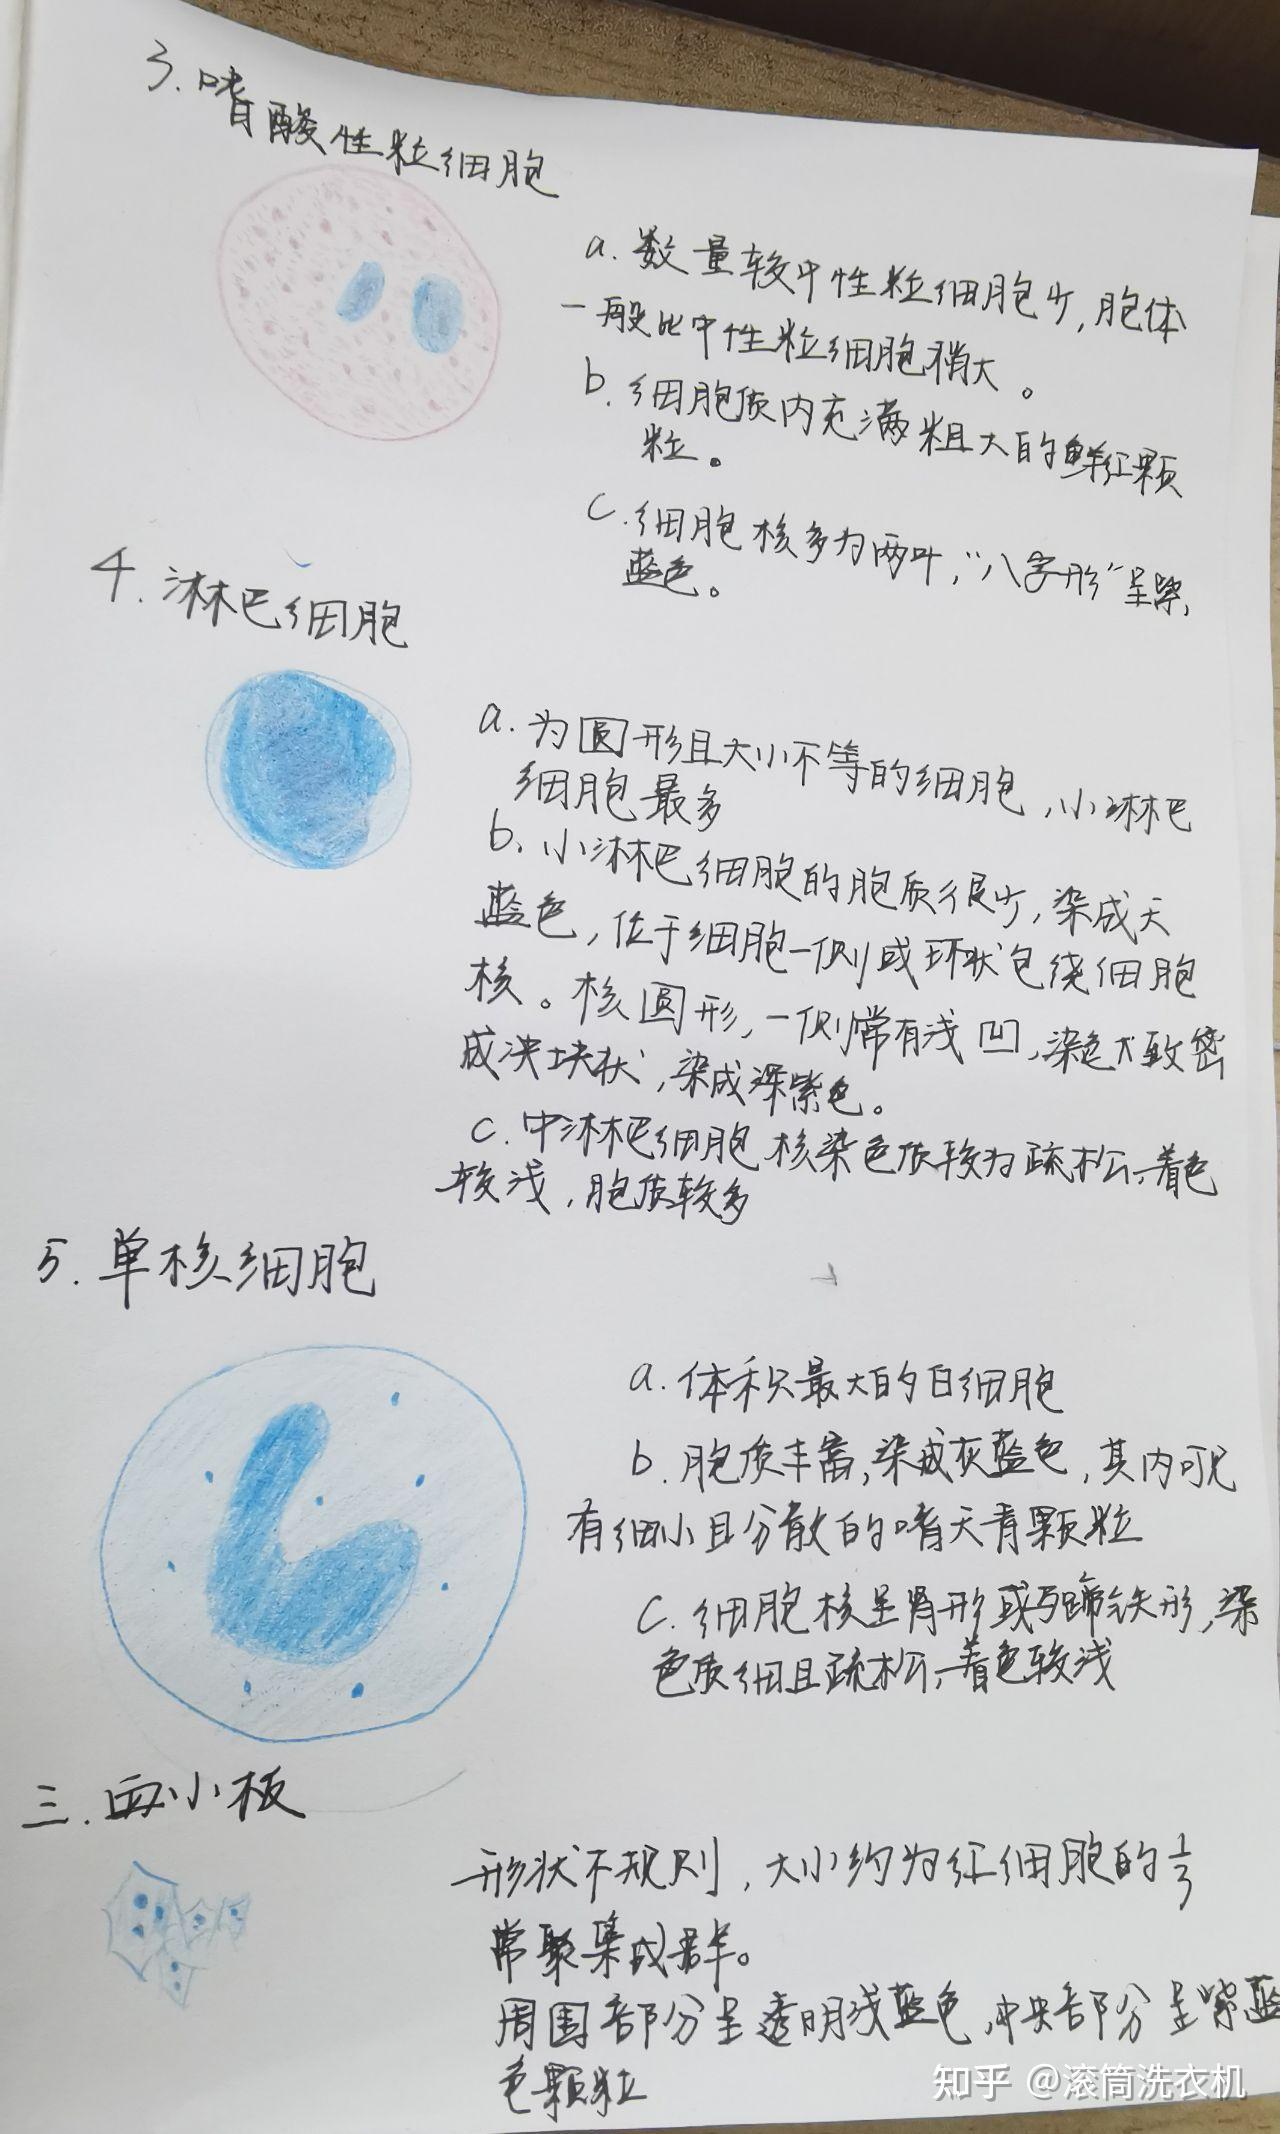 3.嗜酸性粒细胞
a.数量较中性粒细胞少,胞体
一般比中性粒细胞稍大。
b.细胞质内充满粗大的鲜红颗
粒。
c.细胞核多为两叶,“八字形”呈紫
蓝色。
4.淋巴细胞
a.为圆形且大小不等的细胞,小淋巴
细胞最多
b.小淋巴细胞的胞质很少,染成天
蓝色,位于细胞一侧或环状包绕细胞
核。核圆形,一侧常有浅凹,染色大致密
成决块状,染成深紫色。
c.中淋巴细胞核染色质较为疏松,着色
较浅,胞质较多
5.单核细胞
a.体积最大的白细胞
b.胞质丰富,染成灰蓝色,其内可见
有细小且分散的嗜天青颗粒
c.细胞核呈肾形或马蹄铁形,染
色质细且疏松,着色较浅
三.血小板
形状不规则,大小约为红细胞的1/3
常聚集成群。
周围部分呈透明浅蓝色,中央部分呈紫蓝
色颗粒
知乎 @滚筒洗衣机